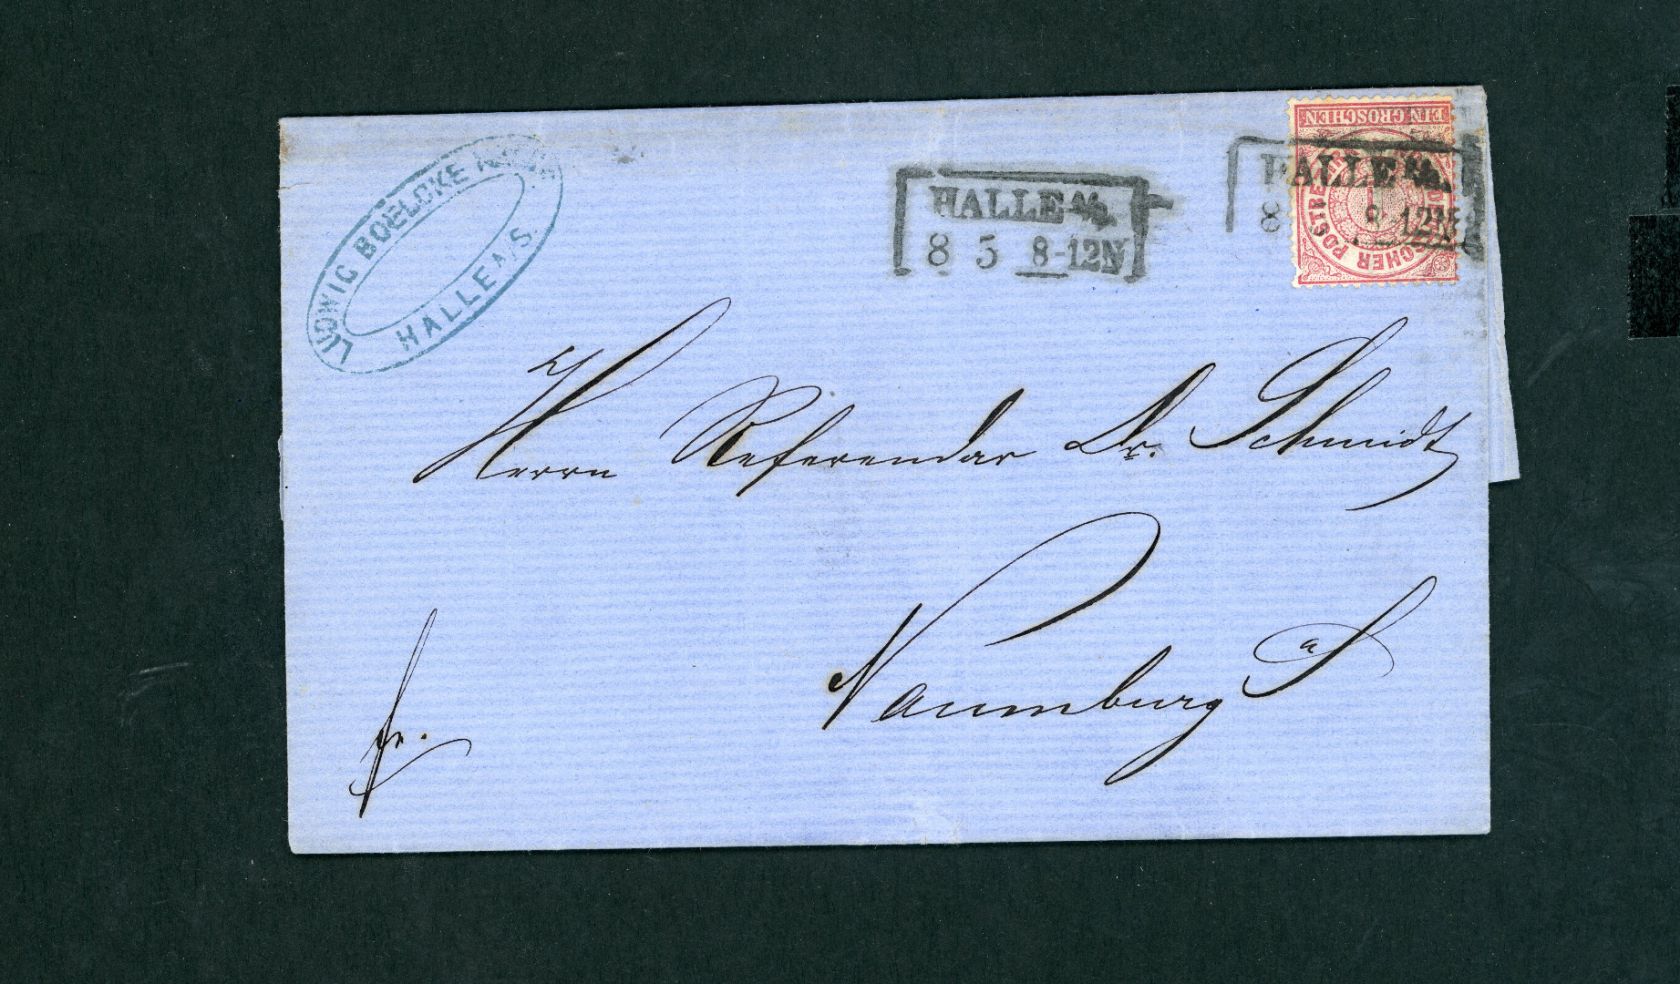 LUDWIG BOELCKE
HALLE A/S.
HALLE A/S.
8 5 8-12N
EIN GROSCHEN
HALLE A/S.
8 8-12N
1
Herrn Referendar Dr. Schmidt
Naumburg a S
fr.